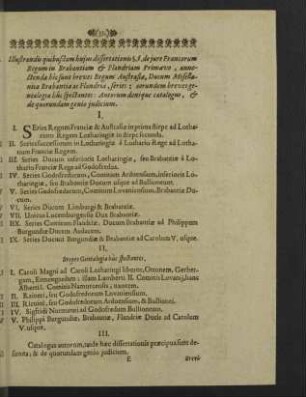 Illustrandis quibusdam hujus dissertationis, s. de jure Francorum
Regum in Brabantiam & Flandriam Primario, anne-
ctenda his sunt breves Regum Austrasiæ, Ducum
nicæ Brabantiæ ac Flandriæ, series; eorundem breves ge-
nealogiæ huc spectantes: Autorum denique catalogus, &
de quorundam genio judicium.
I.
I. Series Regum Franciæ & Austrasiæ in prima stirpe ad Lotha-
rium Regem Lotharingiæ in stirpe secunda.
II. Series successionum in Lotharingia à Lothario Rege ad Lotha-
rium Franciæ Regem.
III. Series Ducum inferioris Lotharingiæ, seu Brabantiæ à Lo-
thario Franciæ Rege ad Godefredum.
IV. Series Godefredorum, Comitum Ardennsium, inferioris Lo-
tharingiæ, seu Brabantiæ Ducum usque ad Bullionæum.
V. Series Godefredorum, Comitum Lovaniensium, Brabantiæ Du-
cum.
VI. Series Ducum Limburgi & Brabantiæ.
VII. Unica Lucemburgensis Dux Brabantiæ.
IIX. Series Comitum Flandriæ, Ducum Brabantiæ ad Philippum
Burgundiæ Ducem Audacem.
IX. Series Ducum Burgundiæ & Brabantiæ ad Carolum V. usque.
II.
Breves Genealogiæ huc spectantes,
I. Caroli Magni ad Caroli Lotharingi liberos, Ottonem, Gerber-
gam, Ermengardem: illam Lamberti II. Comitis Lovanij, hanc
Alberti I. Comitis Namurcensis, uxorem.
II. Raineri, seu Godefredorum Lovaniensium.
III. Ricuini, seu Godefredorum Ardennsium, & Bullionei.
IV. Sigefridi Normanni ad Godefredum Bullionæum.
V. Philippi Burgundiæ, Brabantiæ, Flandriæ Ducis ad Carolum
V. usque.
III.
Catalogus autorum, unde hæc dissertationis præcipua sunt de-
sumta; & de quorundam genio judicium.
E